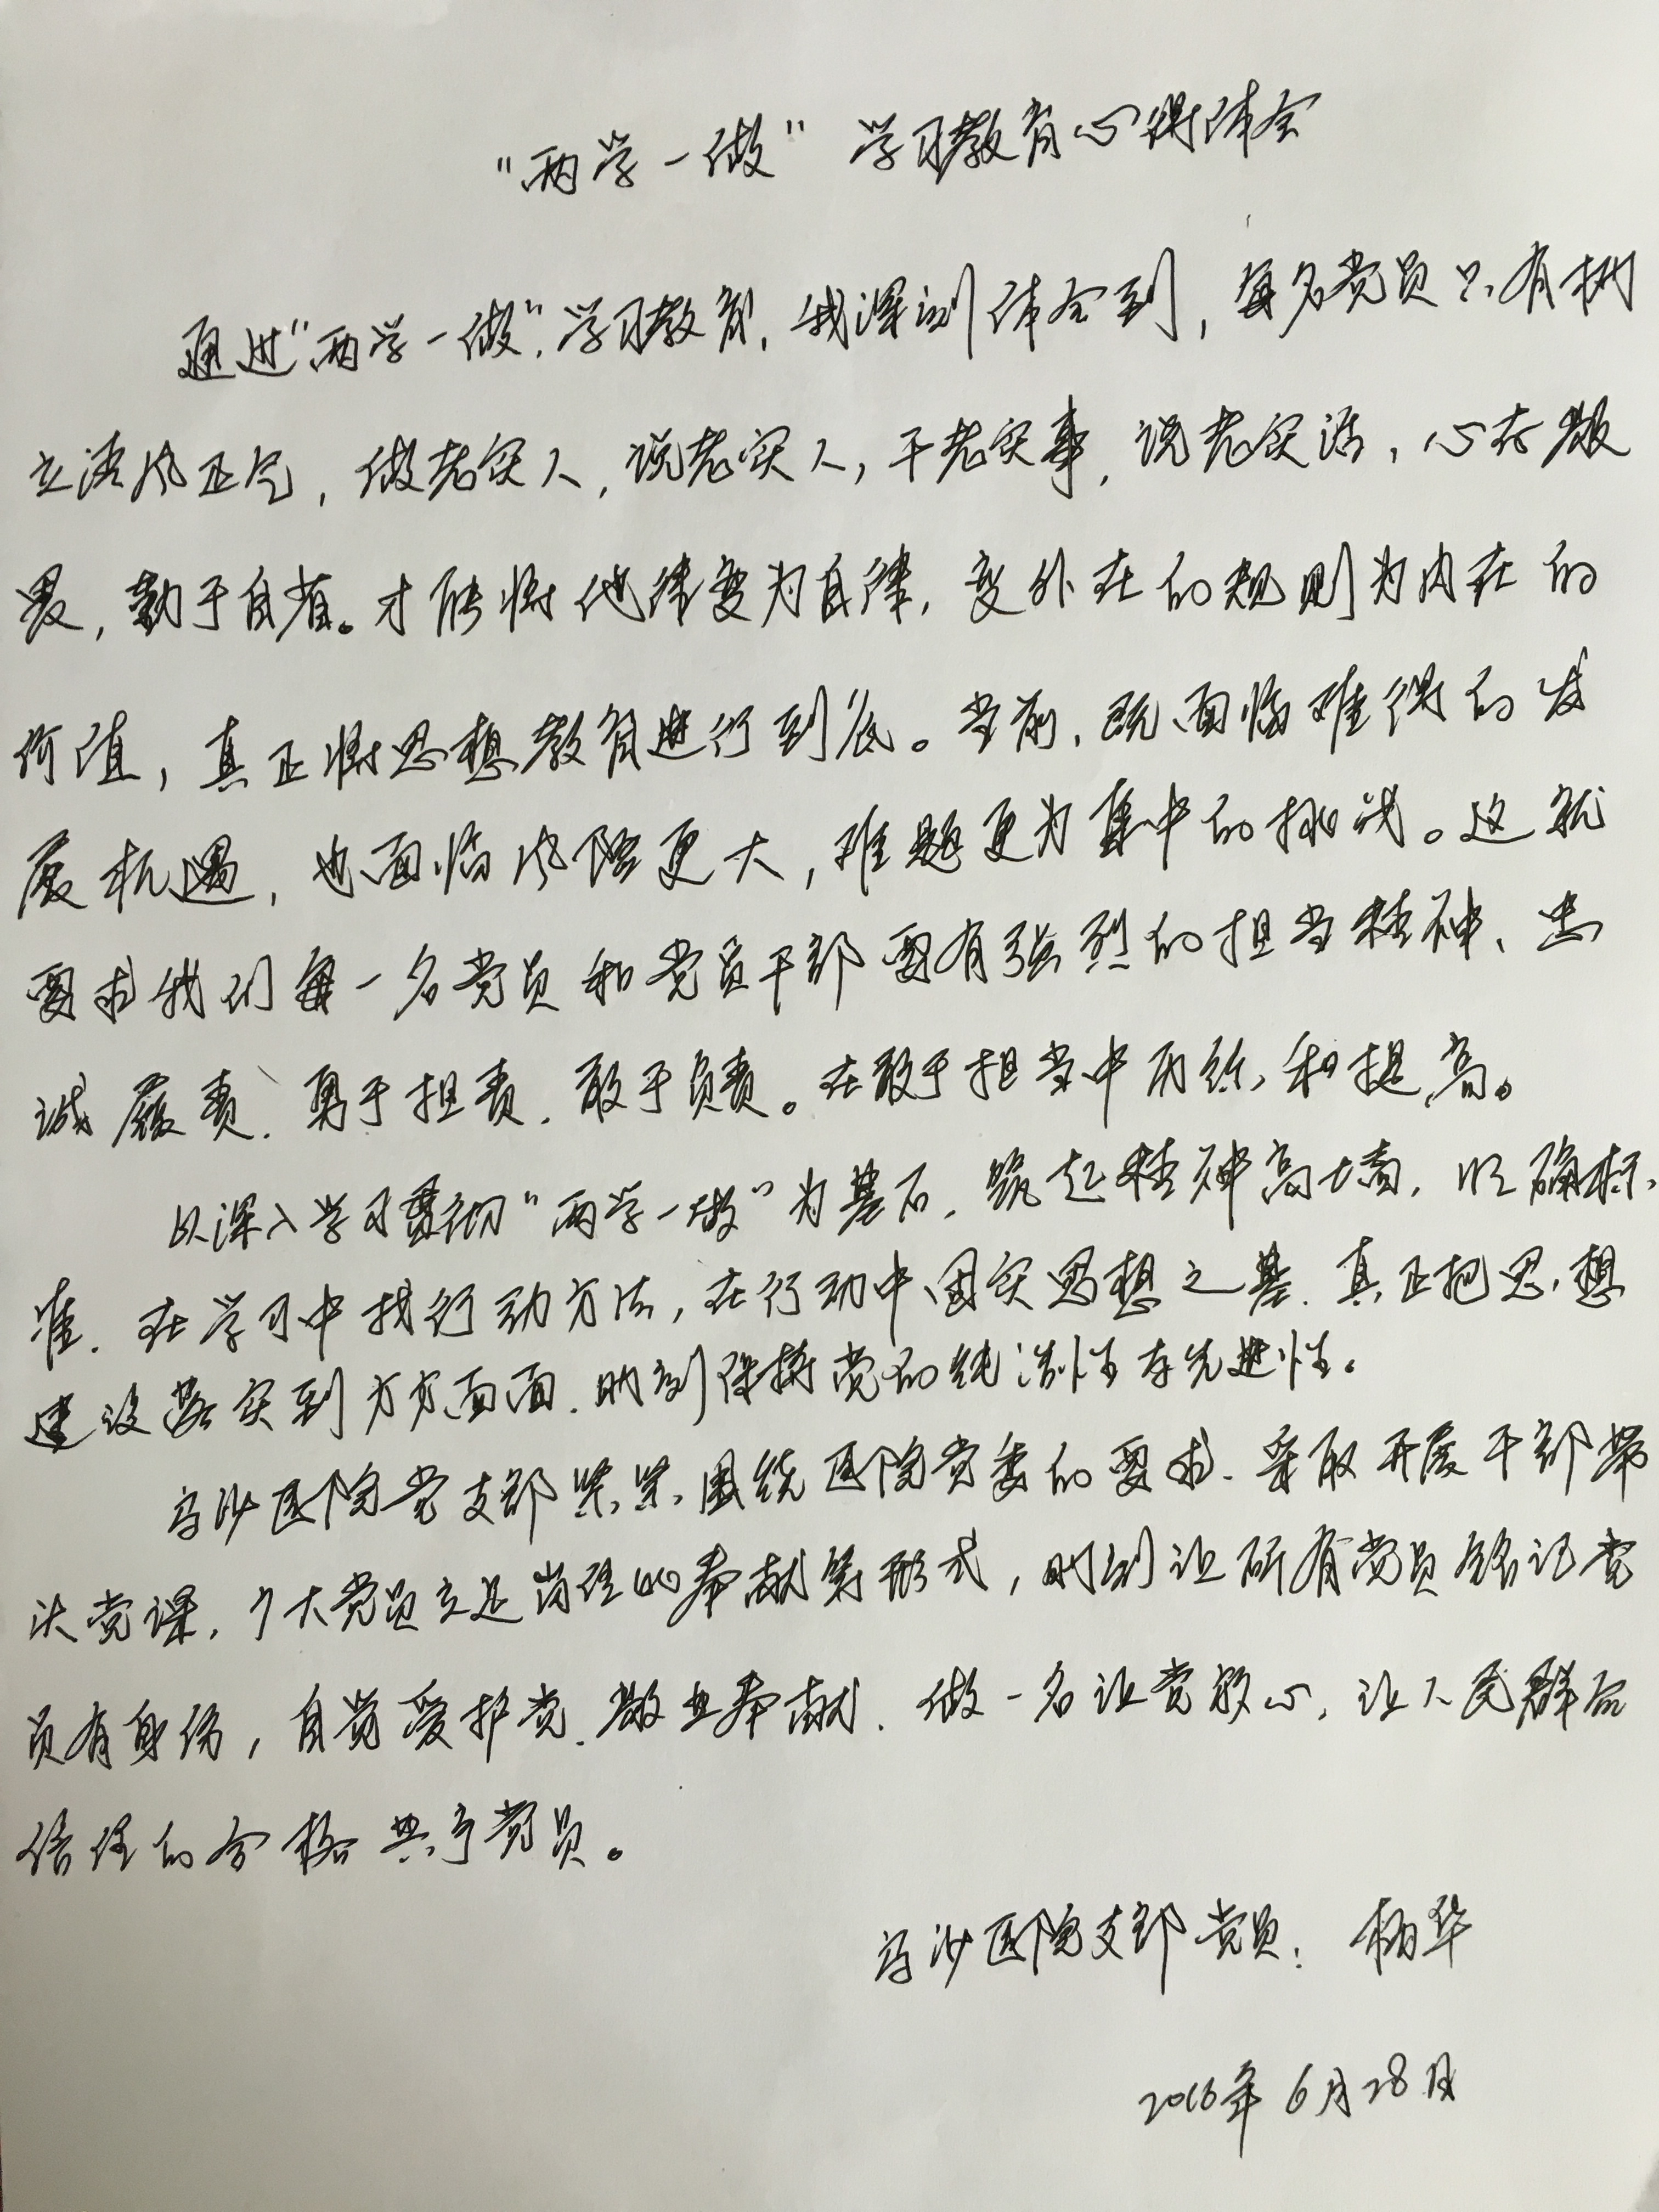 "两学一做" 学习教育心得体会
通过"两学一做"学习教育,我深刻体会到,每名党员只有树
立清风正气,做老实人,说老实人,干老实事,说老实话,心存敬
畏,勤于自省。才能将他律变为自律,变外在的规则为内在的
价值,真正将思想教育进行到底。当前,既面临难得的发
展机遇,也面临风险更大,难题更为集中的挑战。这就
要求我们每一名党员和党员干部要有强烈的担当精神、忠
诚履责、勇于担责、敢于负责。在敢于担当中历练和提高。
以深入学习贯彻"两学一做"为基石,筑起精神高墙,明确标
准.在学习中找行动方法,在行动中固实思想之基.真正把思想
建设落实到方方面面.时刻保持党的纯洁性与先进性。
乌沙医院党支部紧紧围绕医院党委的要求.采取开展干部带
头党课,广大党员立足岗位的奉献等形式,时刻让所有党员铭记党
员有身份,自觉爱护党.敬业奉献.做一名让党放心,让人民群众
信任的合格共产党员。
乌沙医院支部党员:杨华
2016年6月28日